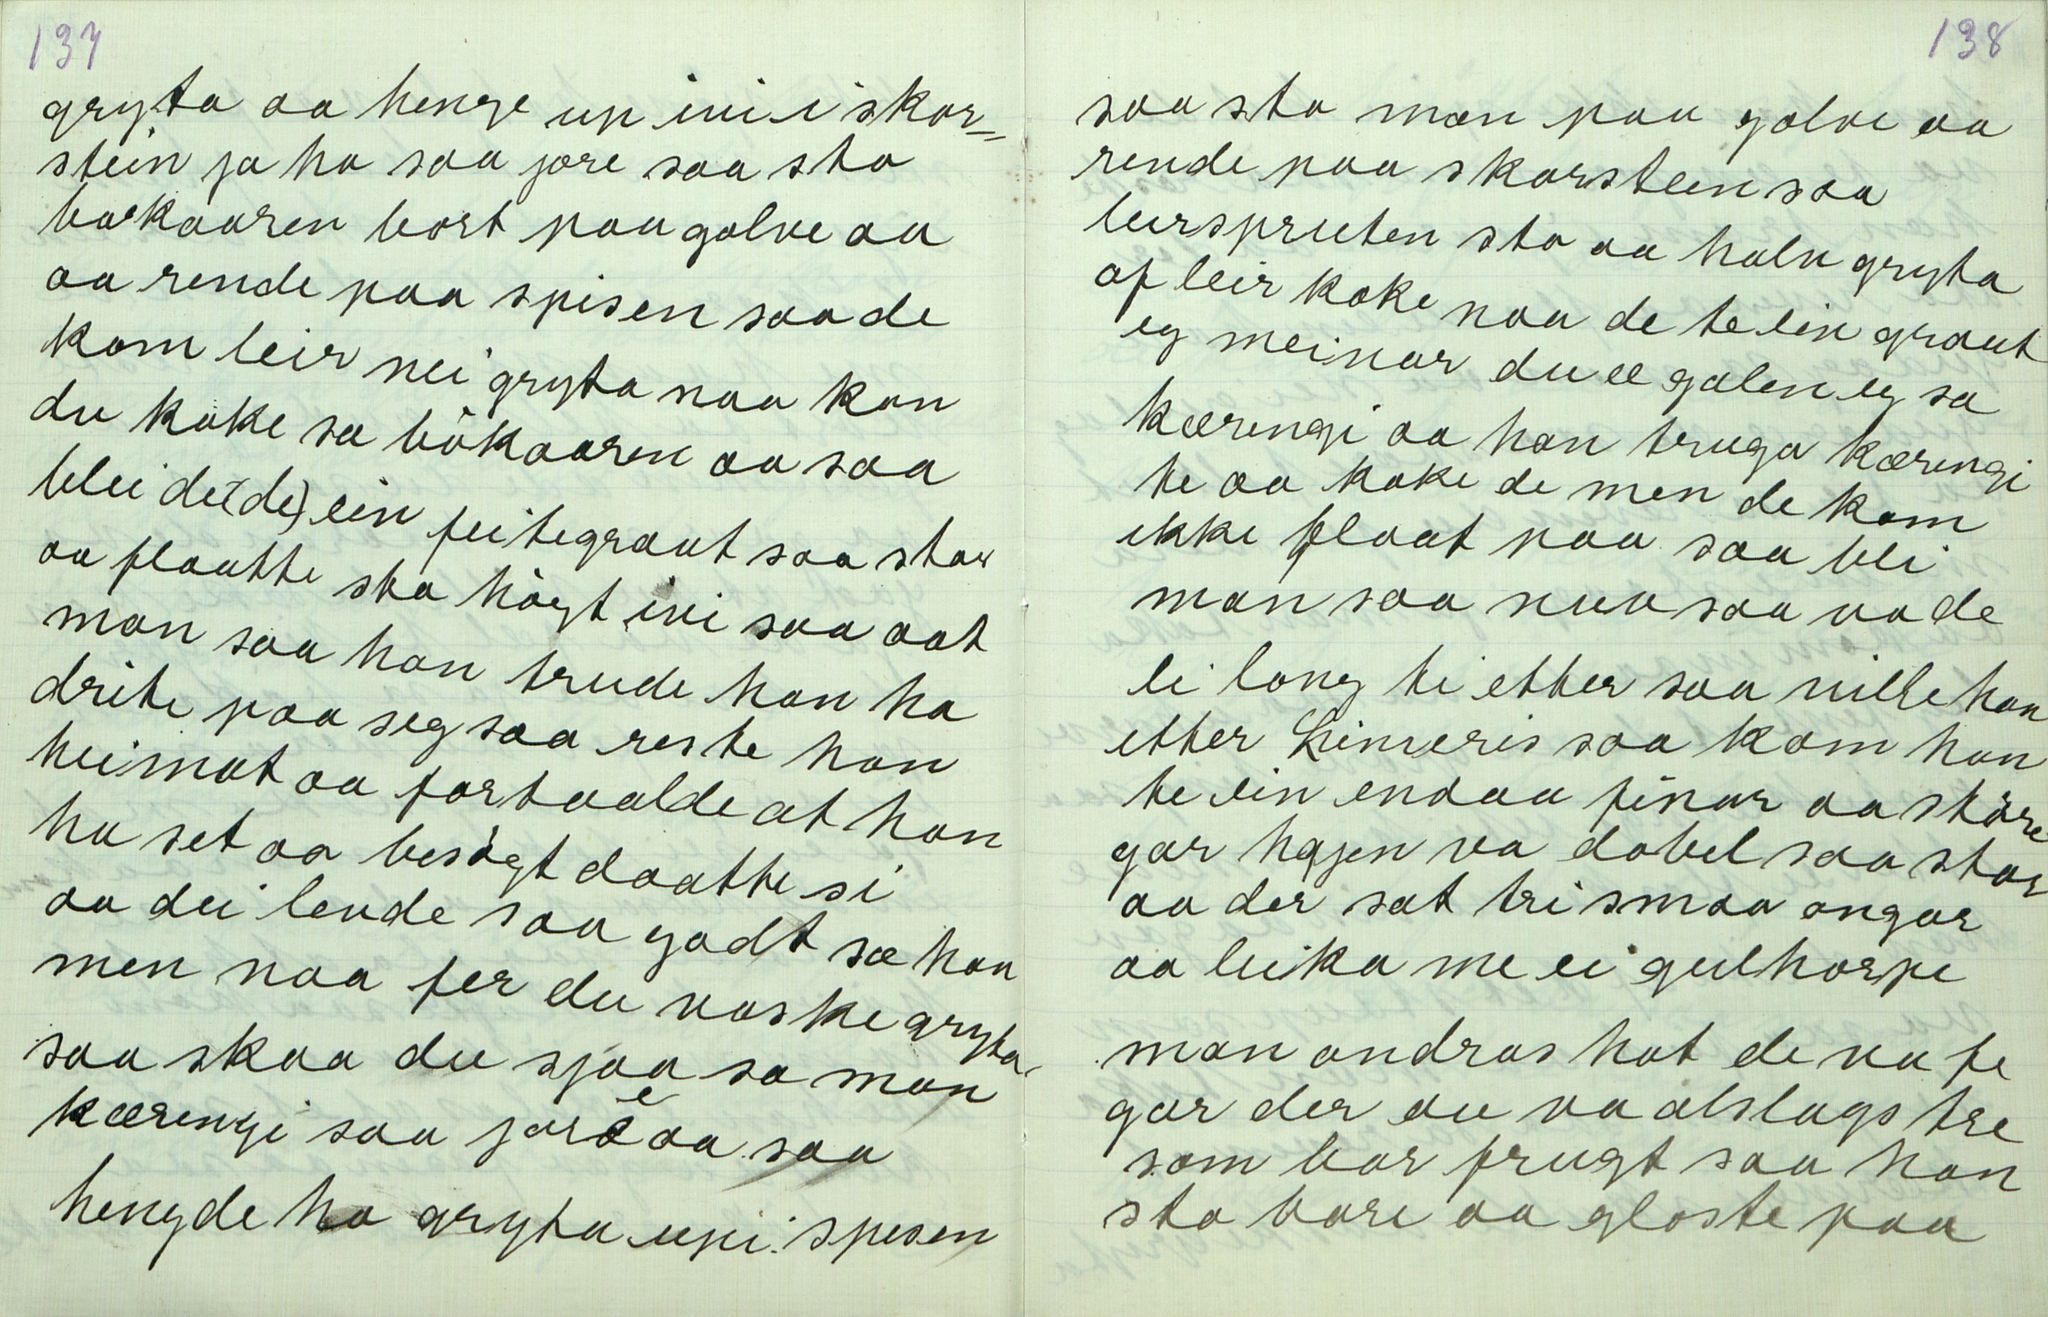 137
gryta aa henge up ivi i skor=
stein ja ho saa jore saa sto
borkaaren bort paa golve aa
aa rende paa spisen saa de
kom leir nei gryta naa kan
du koke sa bökaaren aa saa
blei det(de) ein feitegraut saa stor
aa flautte sto högt ivi saa aat
man saa han trude han ha
drite paa seg saa reste han
heimat aa fortaalde at han
ha set aa besögt daatte si
aa dei levde saa godt sæ han
men naa fer du vaske gryta
saa skaa du sjaa sa man
kærengi saa jore aa saa
hengde ho gryta upi spesen
138
saa sto man paa golve aa
rende paa skorsteen saa
leirspruten sto aa halv gryta
af leir koke naa de te ein graut
eg meinar du ee galen eg sa
kærengi aa han truga kærengi
te aa koke de men de kom
ikke flaat paa saa blei
man saa snuv saa va de
ei long ti etter saa ville han
etter Limeris saa kom han
te ein endaa finar aa störe
gar hajen va dobel saa stor
aa der sat tri smaa ongar
aa leika me ei gulhorpe
man ondras hot de va fe
gar der au va alslags tre
som bar frugt saa han
sto bare aa gloste paa